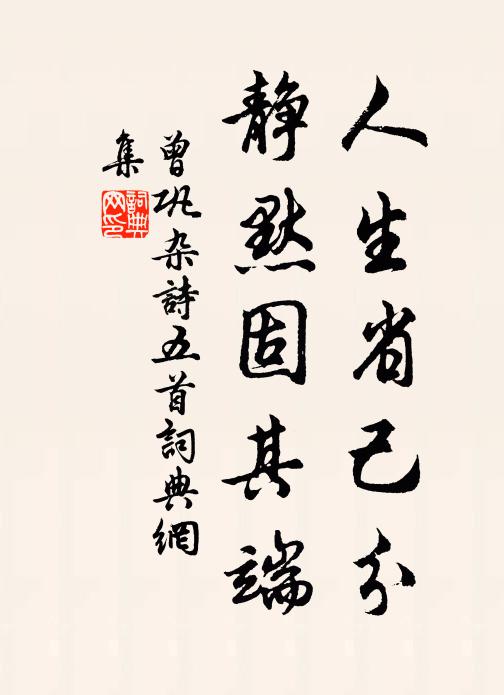 人生省己分
静默固其端
曾巩杂詩五首詞典網
集
詞典網印